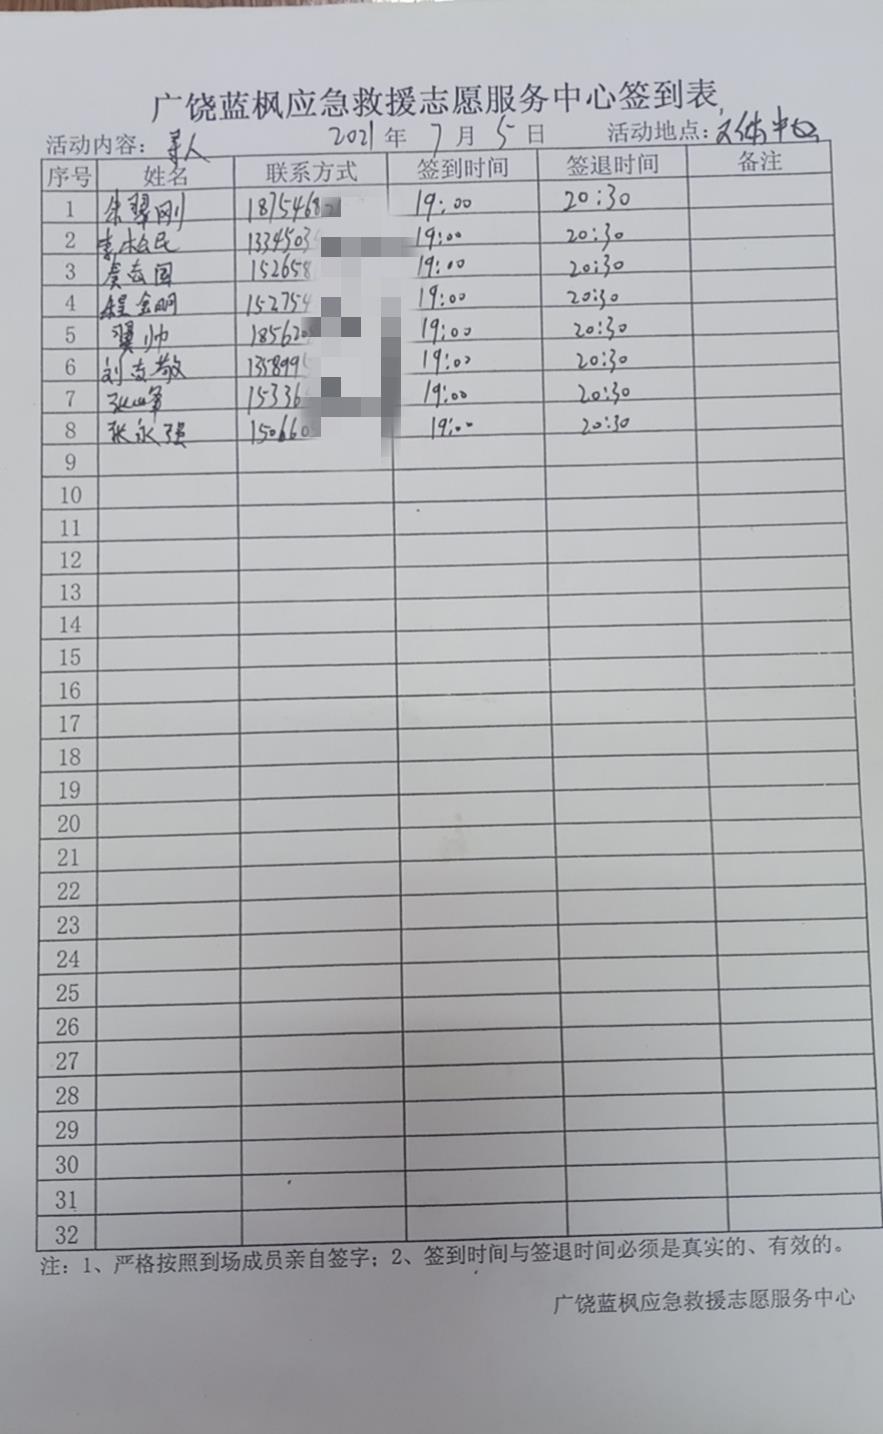 广饶蓝枫应急救援志愿服务中心签到表
活动内容：寻人 2021年7月5日 活动地点：文体中心
序号 姓名 联系方式 签到时间 签退时间 备注
1 刚 18754682 19:00 20:30
2 李民 1334503 19:00 20:30
3 志国 152658 19:00 20:30
4 程金明 152754 19:00 20:30
5 帅 185620 19:00 20:30
6 刘志敬 1358995 19:00 20:30
7 15336 19:00 20:30
8 张永强 150660 19:00 20:30
9
10
11
12
13
14
15
16
17
18
19
20
21
22
23
24
25
26
27
28
29
30
31
32
注：1、严格按照到场成员亲自签字；2、签到时间与签退时间必须是真实的、有效的。
广饶蓝枫应急救援志愿服务中心